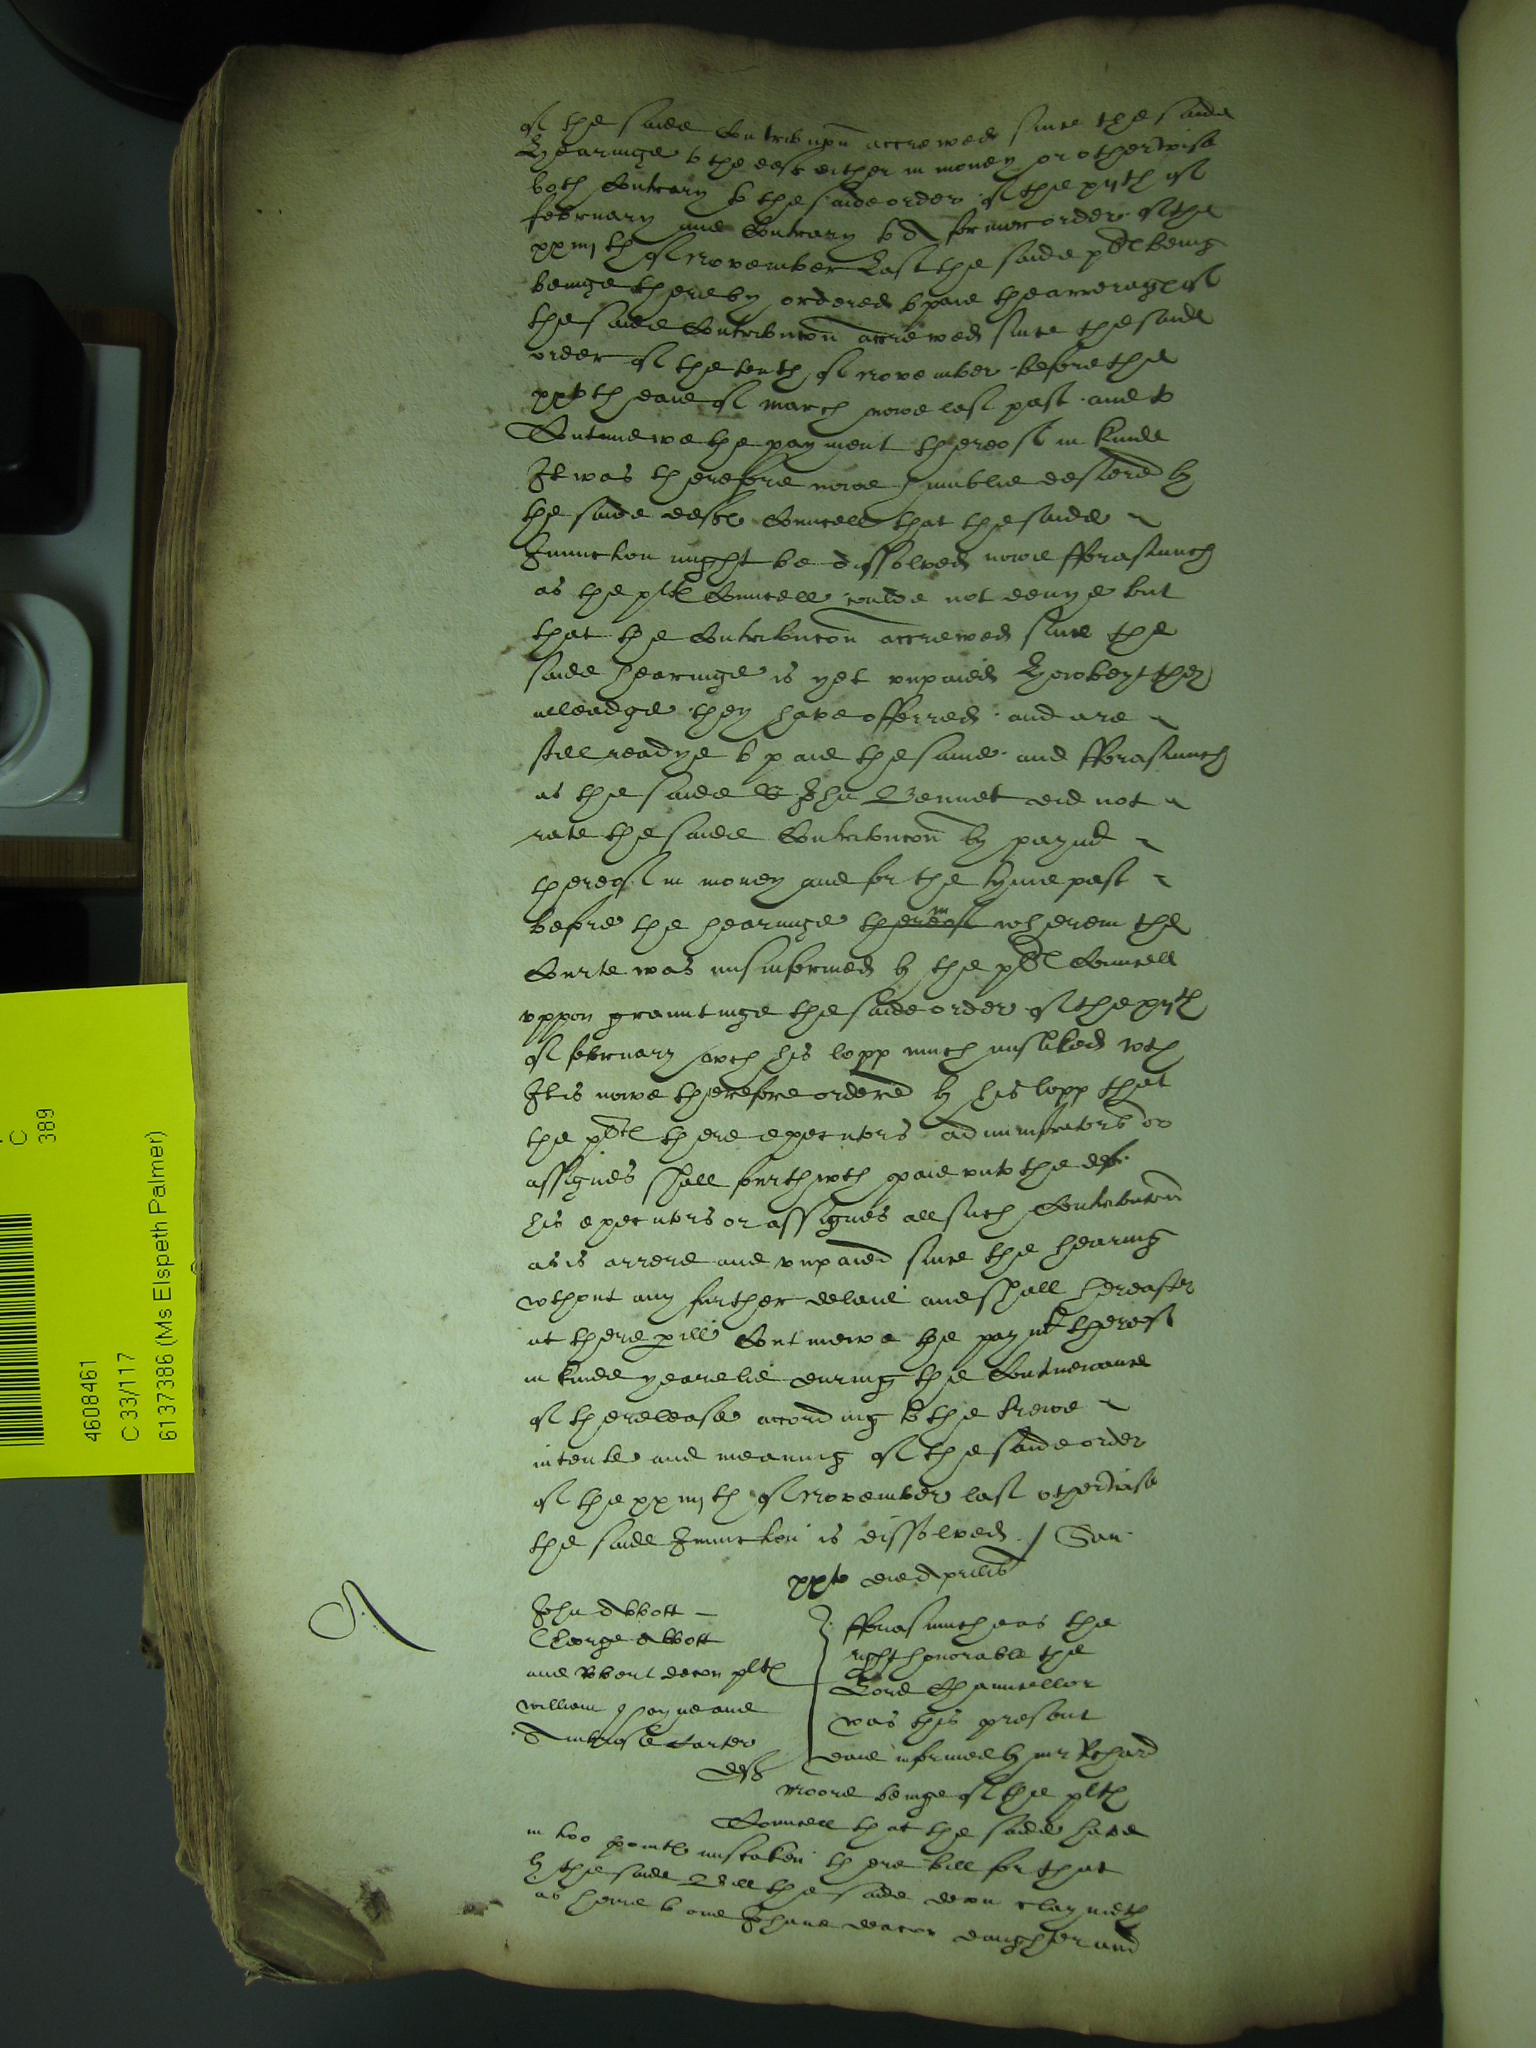 of the saide Contribucon accrewed since the saide
hearinge to the deft either in money or otherwise
both Contrary to the saide order of the xijth of
february and Contrary to A former order of the
xxiiijth of November Last the saide plts being
beinge thereby ordered to paie the arrerages of
the saide Contribucon accrewed since the saide
order of the tenth of November before the
xxvth daie of march nowe last past and to
Contynewe the payment thereof in kinde
It was therefore nowe humblie desiered by
the saide defts Councell that the saide
Iniunction might be dissolved nowe fforasmuch
as the plts Councell coulde not denye but
that the Contribucon accrewed since the
saide hearinge is yet unpaied Howbeyt they
alleadge they have offerred and are
still readye to paie the same and fforasmuch
as the saide Sr John Bennet did not
rate the saide Contribucon by paymt
thereof in money and for the tyme past
before the hearinge thereof wherein the
Courte was misinformed by the plts Councell
uppon grauntinge the saide order of the xijth
of february wch his lopp much misliked wth
It is nowe therefore ordered by his lopp that
the plts there executors administrators or
assignes shall forthwth paie unto the deft
his executors or assignes all such Contribucon
as is arrere and unpaied since the hearing
wthout any further delaie and shall hereafter
at there perill Contynewe the paymt thereof
in kinde yearelie during the Contynuance
of the release according to the trewe
intente and meaning of the saide order
of the xxiiijth of November last otherwise
the saide Iniunction is dissolved / San
xxvto die Aprilis
A
John Abbott
George Abbott
and Robert Deacon plts
William Hayne and
Ambrose Carter
defts
fforasmuch as the
right honorable the
Lord Chauncellor
was this present
daie informed by mr Richard
Moore beinge of the plts
Councell that the saide have
in two points mistaken there bill for that
by the saide Bill the saide Deacon claymeth
as heire to one Johane Deacon daughter and
C
389
4608461
C 33/117
6137386 (Ms Elspeth Palmer)